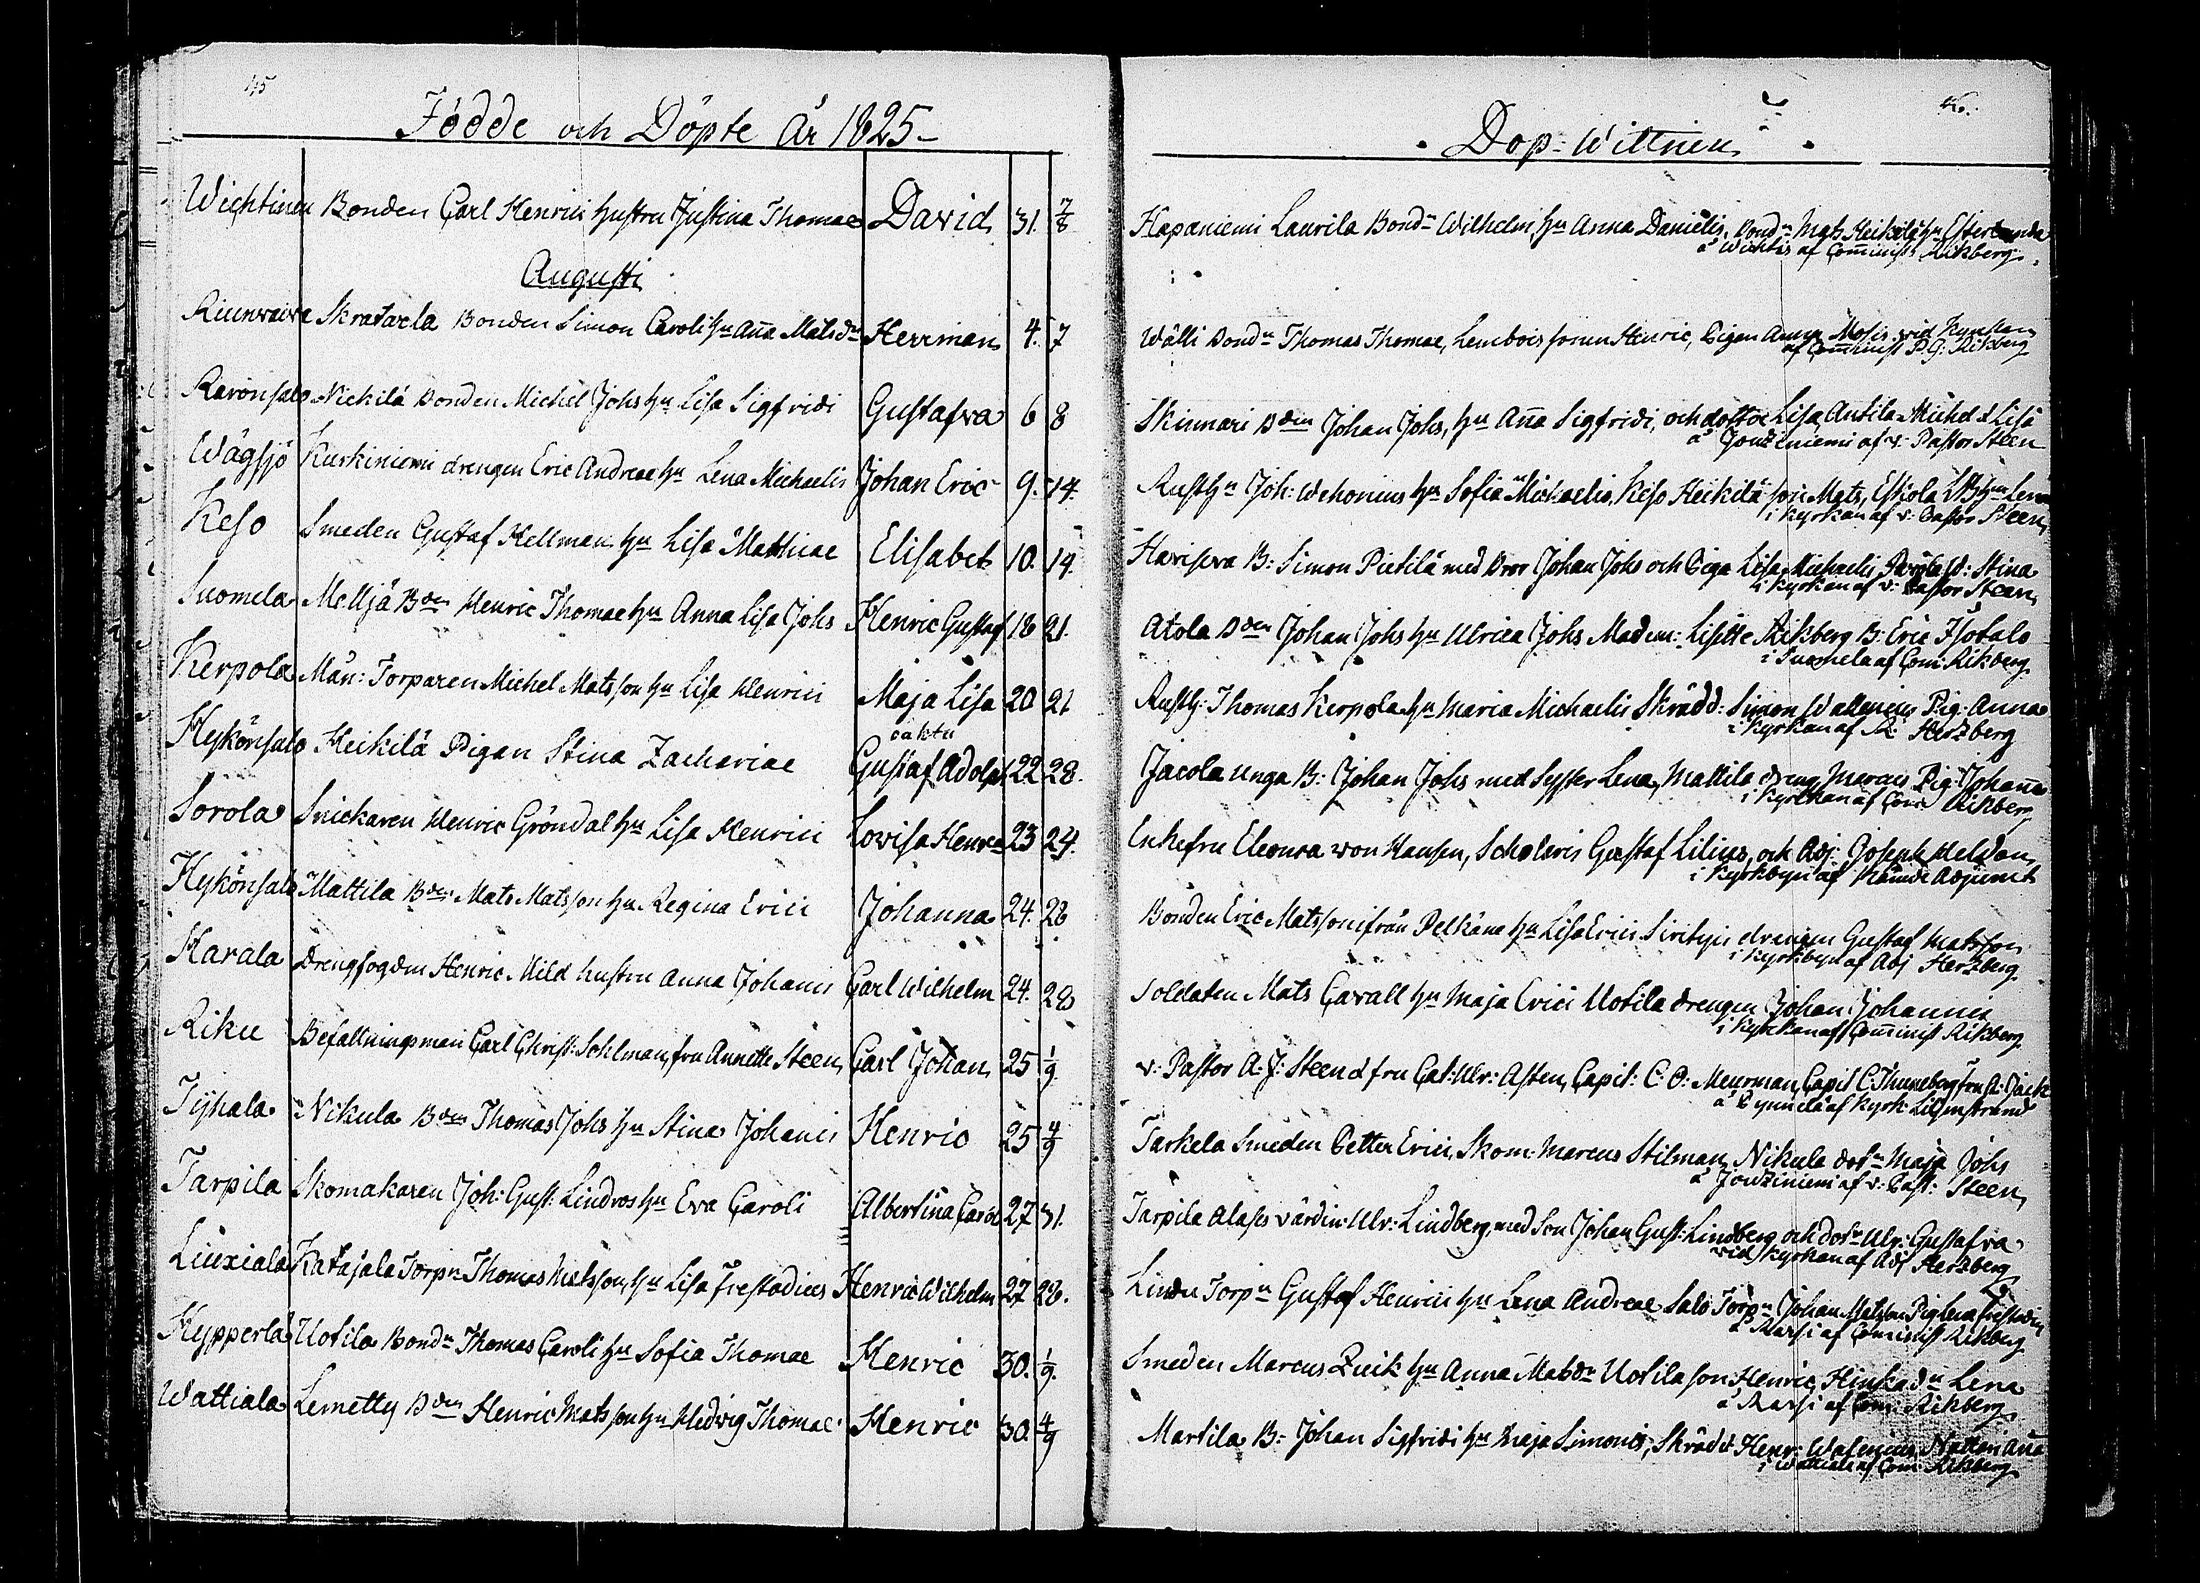 45
Födde och Döpte År 1825
Wichtinen Bonden Carl Henrici hustru Justina Thomae David 31. 7/8
Augusti
Riunwaiva Skratarla Bonden Simon Caroli hu Aña Matsdr Herrman 4. 7
Ravonsalo Nickilä Bonden Michel Johs hu Lisa Sigfridi Gustafva 6 8
Wägsjö Kurkiniemi drengen Eric Andreae hu Lena Michaelis Johan Eric 9. 14.
Keso Smeden Gustaf Hellman hu Lisa Matthiae Elisabet 10. 14.
Suomela Melljä Bden Henric Thomae hu Anna Lisa Johs Henric Gustaf 18 21.
Kerpola Mån: Torparen Michel Matsson hu Lisa Henrici Maja Lisa 20 21
Hykönsalo Heikilä Pigan Stina Zachariae oäkta Gustaf Adolf 22 28.
Sorola Snickaren Henric Gröndal hu Lisa Henrici Lovisa Henrca 23 24.
Hykönsalo Mattila Bden Mats Matsson hu Regina Erici Johanna 24. 28
Harala Drengfogden Henric Mild hustru Anna Johanis Carl Wilhelm 24. 28
Riku Befallningsman Carl Christ: Sohlman, fru Annette Steen Carl Johan 25 1/9
Tyhala Nikula Bden Thomas Johs hu Stina Johanis Henric 25 4/9
Tarpila Skomakaren Joh: Gust: Lindros hu Eva Caroli Albertina Carol 27 31.
Liuxiala Katajala Torpn Thomas Matsson, hu Lisa Frestadius Henric Wilhelm 27 28.
Hypperlä Uotila Bondn Thomas Caroli hu Sofia Thomae Henric 30. 1/9.
Wattiala Lemetty Bden Henric Matsson hu Hedvig Thomae Henric 30. 4/9
46.
Dop-Wittnen
Hapaniemi Laurila Bondn Wilhelm, hu Anna Danielis, Bondn Mats Heikilä hu
å Wichtis af Com̄inist Rikberg.
Wälli Bondn Thomas Thomae, Lembois sonen Henric, Pigan Anna Mosis vid Kyrkan
af Com̄inist P.G: Rikberg
Skinnari Bden Johan Johs, hu Aña Sigfridi, och dotter Lisa, Antila Michel d Lisa
å Jouziniemi af v: Pastor Steen
Rusth Joh: Wehonius hu Sofia Michaelis, Keso Heikilä son Mats, Eskola
i kyrkan af v: Pastor Steen
Havisova B: Simon Pietilä med bror Johan Johs och Piga Lisa Michaelis d: Stina
i kyrkan af v: Pastor Steen
Atola Bden Johan Johs hu Ulrica Johs Madem: Lisette Rikberg B: Eric Isotalo
i Suomela af Com: Rikberg
Rusth: Thomas Kerpola hu Maria Michaelis Skrädd: Simon Wallenius Pig: Anna
i kyrkan af Herzberg
Jacola unga B: Johan Johs med syster Lena, Mattila dreng Marcus Pig: Johaña
i kyrkan af Com: Rikberg
Enkefru Eleonora von Hausen, Scholaris Gustaf Lilius, och Adj: Joseph Heldan
i kyrkbyn af Nämde Adjunct
Bonden Eric Matsson ifrån Pelkäne hu Lisa Erici drengen Gustaf Matsson
i kyrkbyn af Adj Herzberg
Soldaten Mats Cavall hu Maja Erici Uotila drengen Johan Johannis
i kyrkan af Com̄inist Rikberg
v: Pastor A: J: Steen d fru Cat: Ulr: Asten, Capit: C: O: Meurman, Capit C. Thuneberg fru A: Jack
å af kyrk: Liljenstrand
Tarkela Smeden Petter Erici, Skom: Marcus Stilman, Nikula dotr Maja Johs
å Jouziniemi af v: Past: Steen
Tarpila Alases värdin: Ulr: Lindberg, med son Johan Gust: Lindberg och dotr Ulr: Gustafva
vid kyrkan af Adj Herzberg
Lindu Torpn Gustaf Henrici hu Lena Andreae Salo Torpn Johan Matsson Pig Lena
å Rarsi af Com̄inist Rikberg
Smeden Marcus Quik hu Anna Matsdr Uotila son Henric, Hinka dr Lena
å Rarsi af Com: Rikberg
Martila B: Johan Sigfridi hu Maja Simonis, Skrädd Henr: Walenius, Aña
i Wattiala af Com: Rikberg